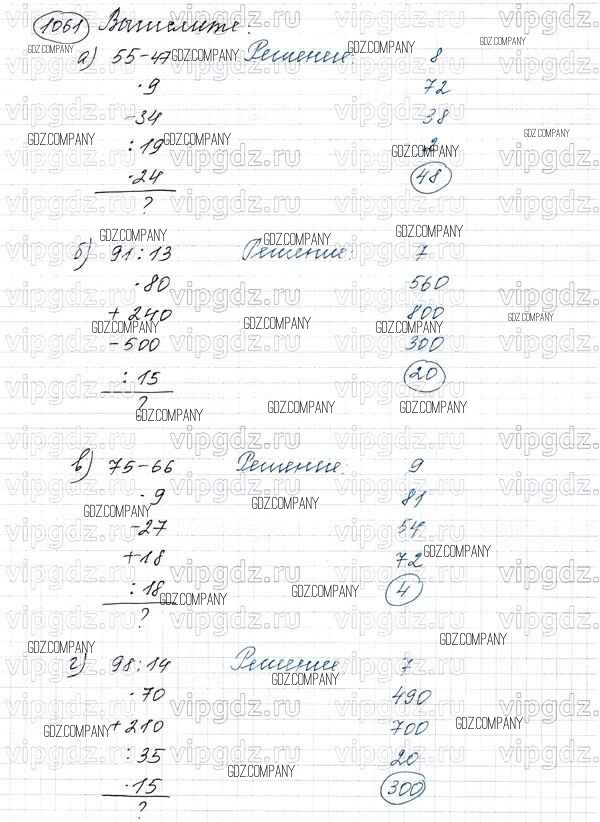 1061 Вычислите:
а) 55-47 Решение: 8
·9 72
-34 38
:19 2
·24 48
?
б) 91:13 Решение: 7
·80 560
+240 800
-500 300
:15 20
?
в) 75-66 Решение: 9
·9 81
-27 54
+18 72
:18 4
?
г) 98:14 Решение 7
·70 490
+210 700
:35 20
·15 300
?
GDZ.COMPANY
vipgdz.ru